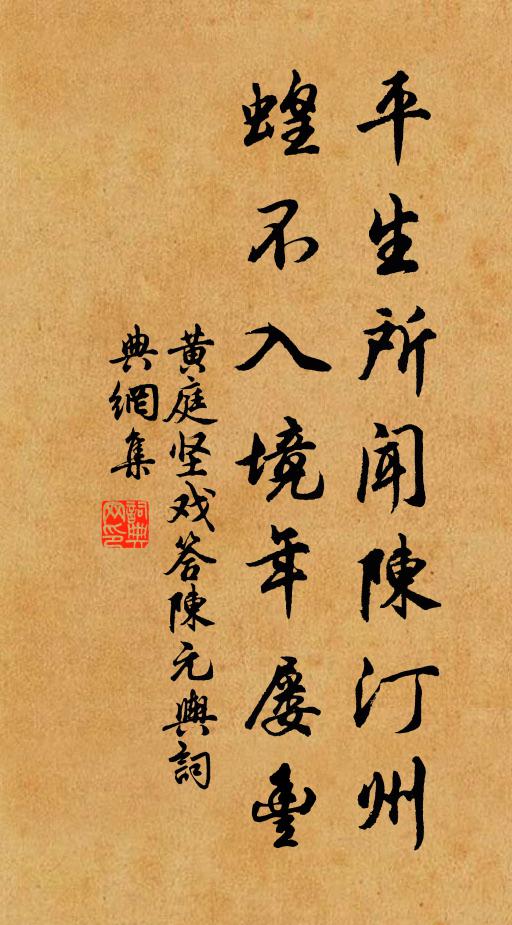 平生所聞陳汀州
蝗不入境年屡豊
黄庭坚戏答陳元輿詞
典網集
詞典網印